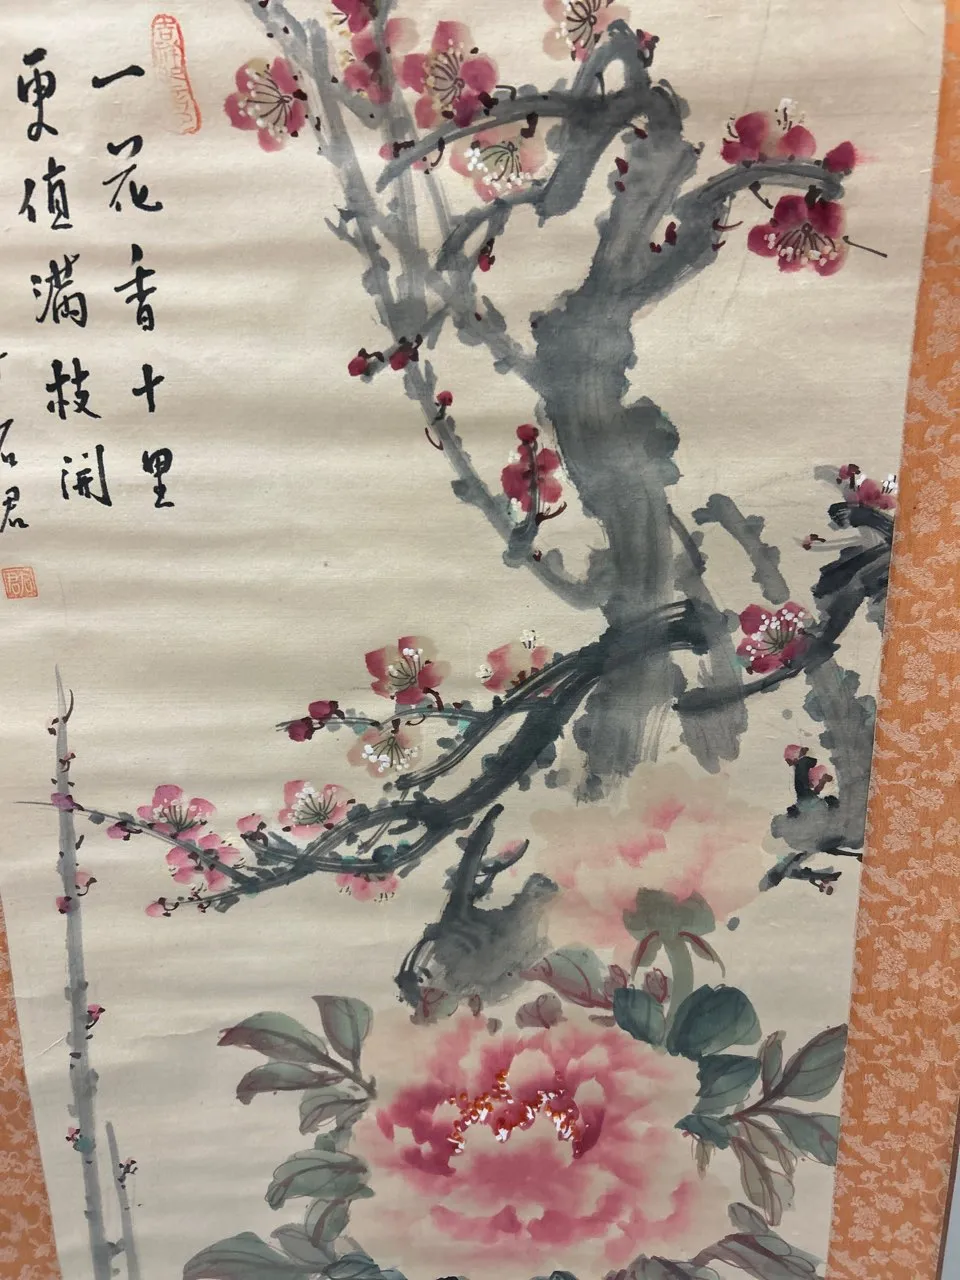 一花香十里
更值滿枝開
石君